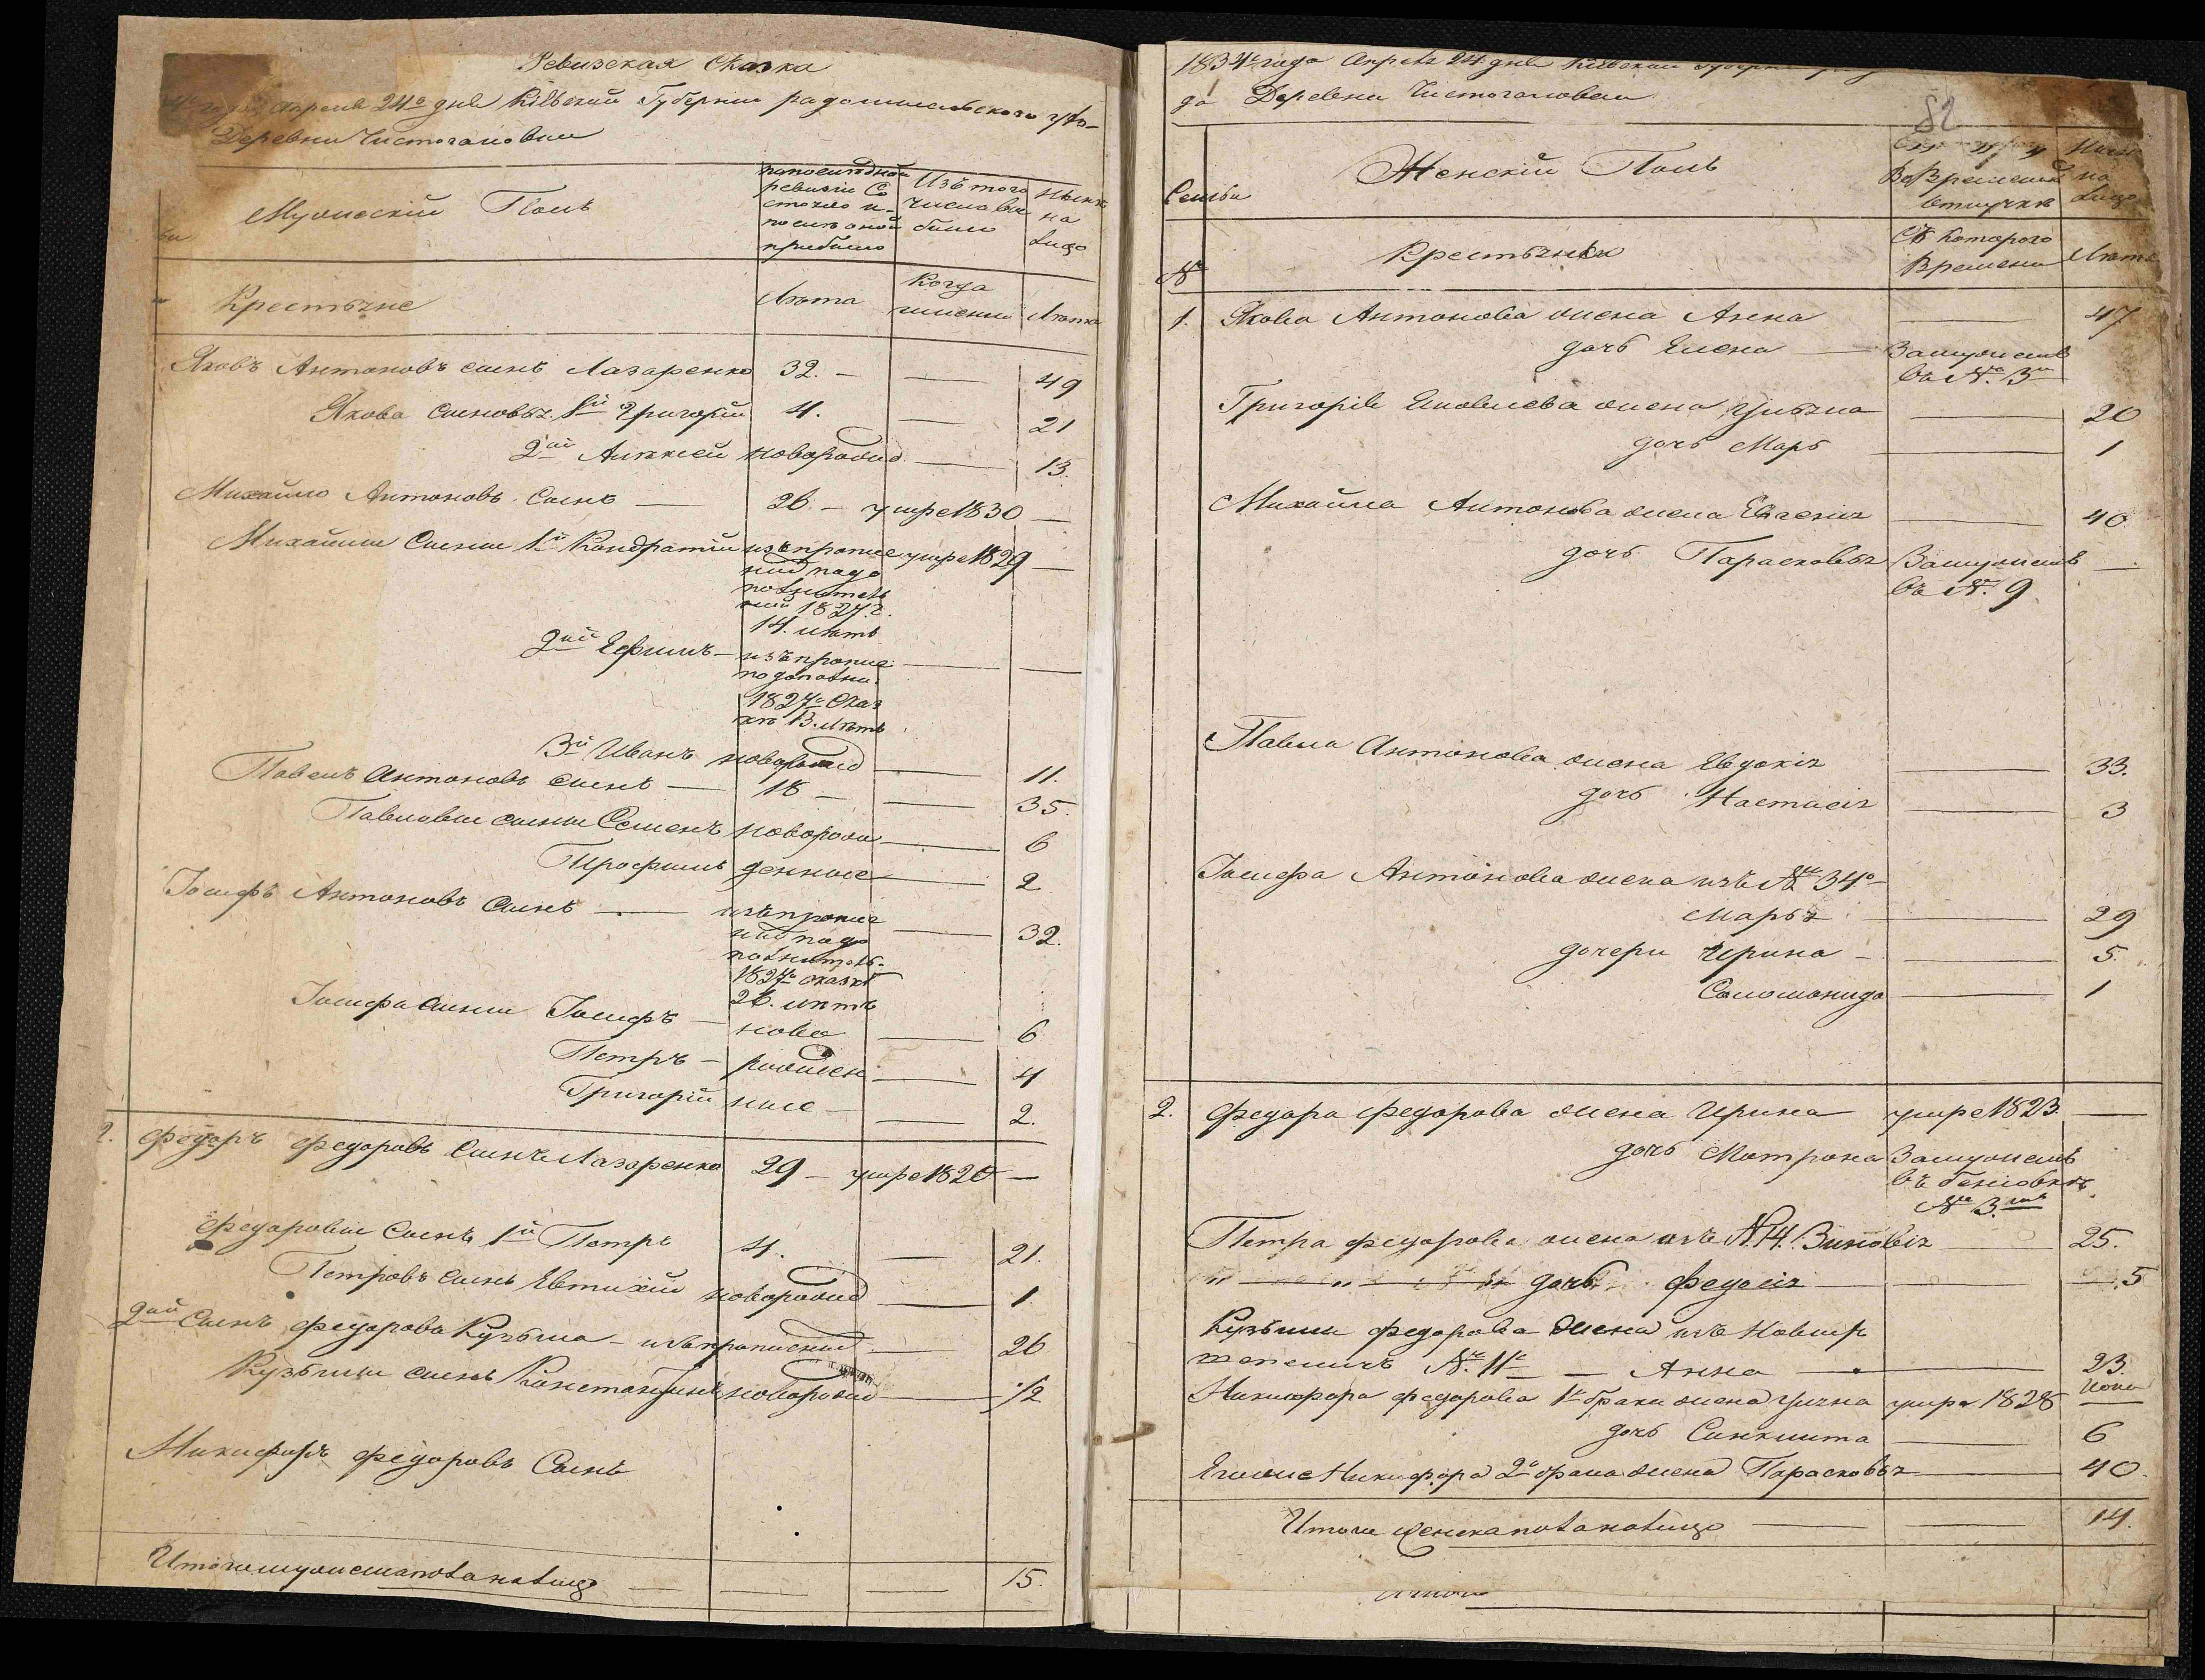 Ревизская Сказка
года апреля 24го дня Кіевской Губерніи радомысльского уѣз-
Деревни Чистогаловки
Мужескій Полъ
по последной
ревизіи Со
стояло и
после оной
прибыло
Изъ того
числа вы
было
Нынѣ
на
лицо
Крестьяне
Лѣта
Когда
именно
Лѣта
Яковъ Антоновъ сынъ Лазаренко 32. — — 49
Якова сыновья 1й Григорій 4. — 21
2ой Алексей новорожд — 13
Михайло Антоновъ Сынъ — 26. — умре 1830 —
Михайлы Сыны 1й Кондратій изъ пропис умре 1829 —
ныхъ по до
полнитель
ной 1827 г.
14. лѣтъ
2ой Ефимъ — изъ пропис — —
по дополни.
1827го Сказ
кѣ 13. лѣтъ
3й Иванъ новорожд — 11.
Павелъ Антоновъ сынъ — 18 — — 35.
Павловы сыны Семенъ новорож — 6
Трофимъ денные — 2
Іосифъ Антоновъ Сынъ — изъ пропис — 32.
ныхъ по до
полнитель.
1827го сказкѣ
26. лѣтъ
Іосифа Сыны Іосифъ — ново — 6
Петръ — рожден — 4
Григорій ные — — 2.
2. Федоръ Федоровъ Сынъ Лазаренко 29 — умре 1826 —
Федоровы Сынъ 1й Петръ 4. — 21.
Петровъ сынъ Евтихій новорожд — 1.
2ой Сынъ Федорова Кузьма — изъ прописных — 26
Кузьмы сынъ Константинъ новорожд — 1/2
Никифоръ Федоровъ Сынъ
Итого мужеска пола налицо — — — 15.
1834го года Апреля 24 дня Кіевской Губерніи
да Деревни Чистогаловки
82
Семьи
Женскій Полъ
Во Временной
отлучкѣ
на
лицо
№
Крестьянки
Съ Которого
Времени
Лѣта
1. Якова Антонова жена Анна — 47
дочь Елена — Замужемъ
въ №. 3м
Григорія Яковлева жена Ульяна — 20
дочь Марь — 1
Михайла Антонова жена Евгенія — 40
дочь Парасковья Замужемъ —
въ №. 9
Павла Антонова жена Евдокія — 33.
дочь Настасія — 3
Іосифа Антонова жена изъ № 34го
Марья — 29
дочери Ирина — — 5.
Соломонида — 1
2. Федора Федорова жена Ирина умре 1823. —
дочь Матрона Замужемъ
въ
№ 3.мъ
Петра Федорова жена изъ №14. Зиновія — 25.
" — " — " дочь Федосія — 5
Кузьмы Федорова жена изъ
№. 11го — Анна — 23.
Никифора Федорова 1го брака жена Уляна умре 1828 —
дочь Синклита — 6
Егоже Никифора 2го брака жена Парасковья — 40.
Итого женска пола налицо — — 14.